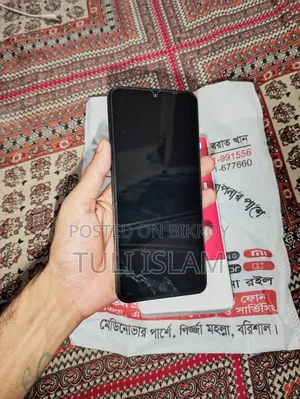 বরাত খান
-991556
-677660
আপনার পাশে
POSTED ON BIKROY
TULI ISLAM
mi
না রইল
ফোন
সার্ভিসিং
মেডিনোভার পার্শে, গির্জ্জা মহল্লা, বরিশাল।